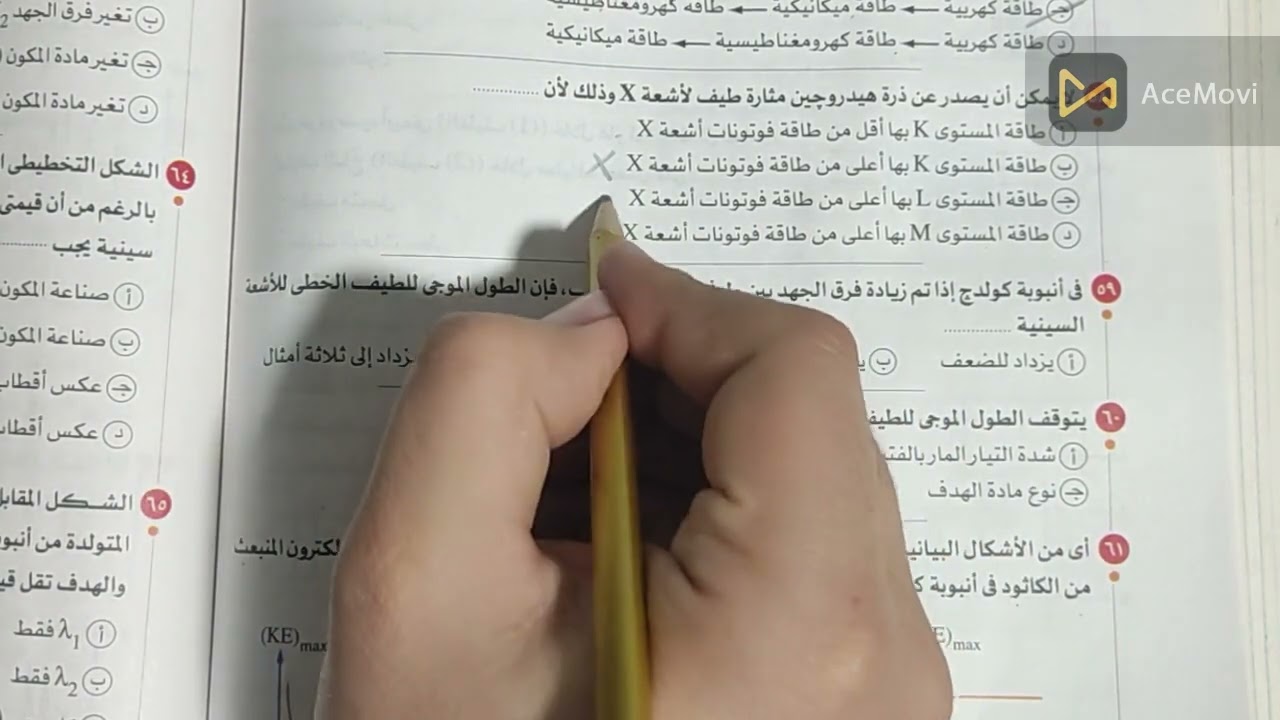 جـ طاقة كهربية ← طاقة ميكانيكية ← طاقة كهرومغناطيسية
د طاقة كهربية ← طاقة كهرومغناطيسية ← طاقة ميكانيكية
يمكن أن يصدر عن ذرة هيدروچين مثارة طيف لأشعة X وذلك لأن ..............
أ طاقة المستوى K بها أقل من طاقة فوتونات أشعة X
ب طاقة المستوى K بها أعلى من طاقة فوتونات أشعة X
جـ طاقة المستوى L بها أعلى من طاقة فوتونات أشعة X
د طاقة المستوى M بها أعلى من طاقة فوتونات أشعة X
٥٩ فى أنبوبة كولدج إذا تم زيادة فرق الجهد بين ، فإن الطول الموجى للطيف الخطى للأشعة
السينية ..............
أ يزداد للضعف ب يزداد إلى ثلاثة أمثال
٦٠ يتوقف الطول الموجى للطيف
أ شدة التيار المار
جـ نوع مادة الهدف
٦١ أى من الأشكال البيانية المنبعث
من الكاثود فى أنبوبة
(KE)max
E)max
ب تغير فرق الجهد
جـ تغير مادة المكون
د تغير مادة المكون
٦٤ الشكل التخطيطى
بالرغم من أن قيمتى
سينية يجب ..........
أ صناعة المكون
ب صناعة المكون
جـ عكس أقطاب
د عكس أقطاب
٦٥ الشكل المقابل
المتولدة من
والهدف تقل
أ λ1 فقط
ب λ2 فقط
AceMovi